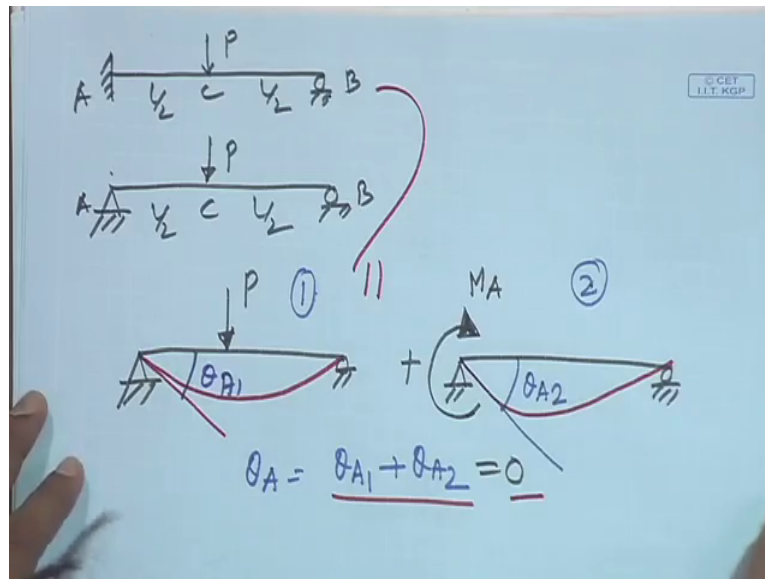 P
© CET
I.I.T. KGP
A L/2 C L/2 B
P
A L/2 C L/2 B
P 1 MA 2
θA1 + θA2
θA = θA1 + θA2 = 0